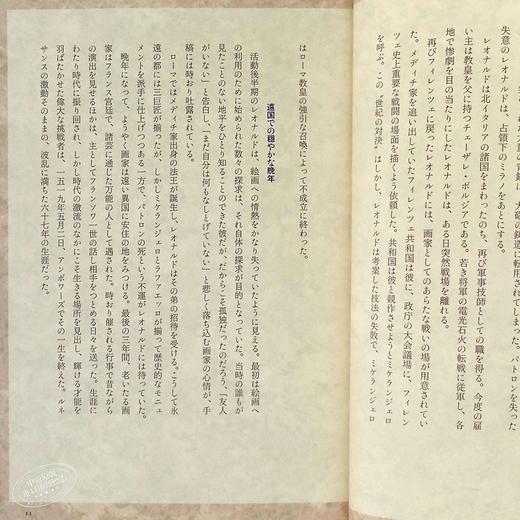 失意のレオナルドは、占領下のミラノをあとにする。
レオナルドは北イタリアの諸国をまわったのち、再び軍事技師としての職を得る。今度の雇
い主は教皇を父に持つチェーザレ・ボルジアである。若き将軍の電光石火の転戦に従軍し、各
地で惨劇を目の当たりにしたレオナルドは、ある日突然戦場を離れる。
再びフィレンツェに戻ったレオナルドには、画家としてのあらたな戦いの場が用意されてい
た。メディチ家を追い出していたフィレンツェ共和国は彼に、政庁の大会議場に、フィレン
ツェ史上重要な戦闘の場面を描くよう依頼した。共和国は彼と競作させようとミケランジェロ
を呼ぶ。この“世紀の対決”はしかし、レオナルドは考案した技法の失敗で、ミケランジェロ
はローマ教皇の強引な召喚によって不成立に終わった。
遠国での穏やかな晩年
活動後半期のレオナルドは、絵画への情熱をかなり失っていたように見える。最初は絵画へ
の利用のために始められた数々の探求は、それ自体の探求が目的となっていた。当時の誰もが
見たことのない地平をひとり知ることのできた彼だが、だからこそ孤独だったのだろう、「友人
がいない」と告白し、「まだ自分は何もなしとげていない」と悲しく落ち込む画家の心情が、手
稿には時おり吐露されている。
ローマではメディチ家出身の法王が誕生し、レオナルドはその弟の招待を受ける。こうして永
遠の都には三巨匠が揃ったが、しかしミケランジェロとラファエッロが揃って歴史的なモニュ
メントを派手に仕上げつつある一方で、パトロンの死という不運がレオナルドには待っていた。
晩年になって、ようやく画家は遠い異国に安住の地をみつける。最後の三年間、老いたる画
家はフランス宮廷で、諸芸に通じた万能の人として遇された。時おり催される行事で昔ながら
の演出を見せるほかは、主としてフランソワ一世の話し相手をつとめる日々を送った。生涯に
わたり時代に振り回され、しかし時代の激流のなかにこそ生きる場所を見出し、輝ける才能を
羽ばたかせた偉大な挑戦者は、一五一九年五月二日、アンボワーズでその一生を終えた。ルネ
サンスの激動そのままの、波乱に満ちた六十七年の生涯だった。
11